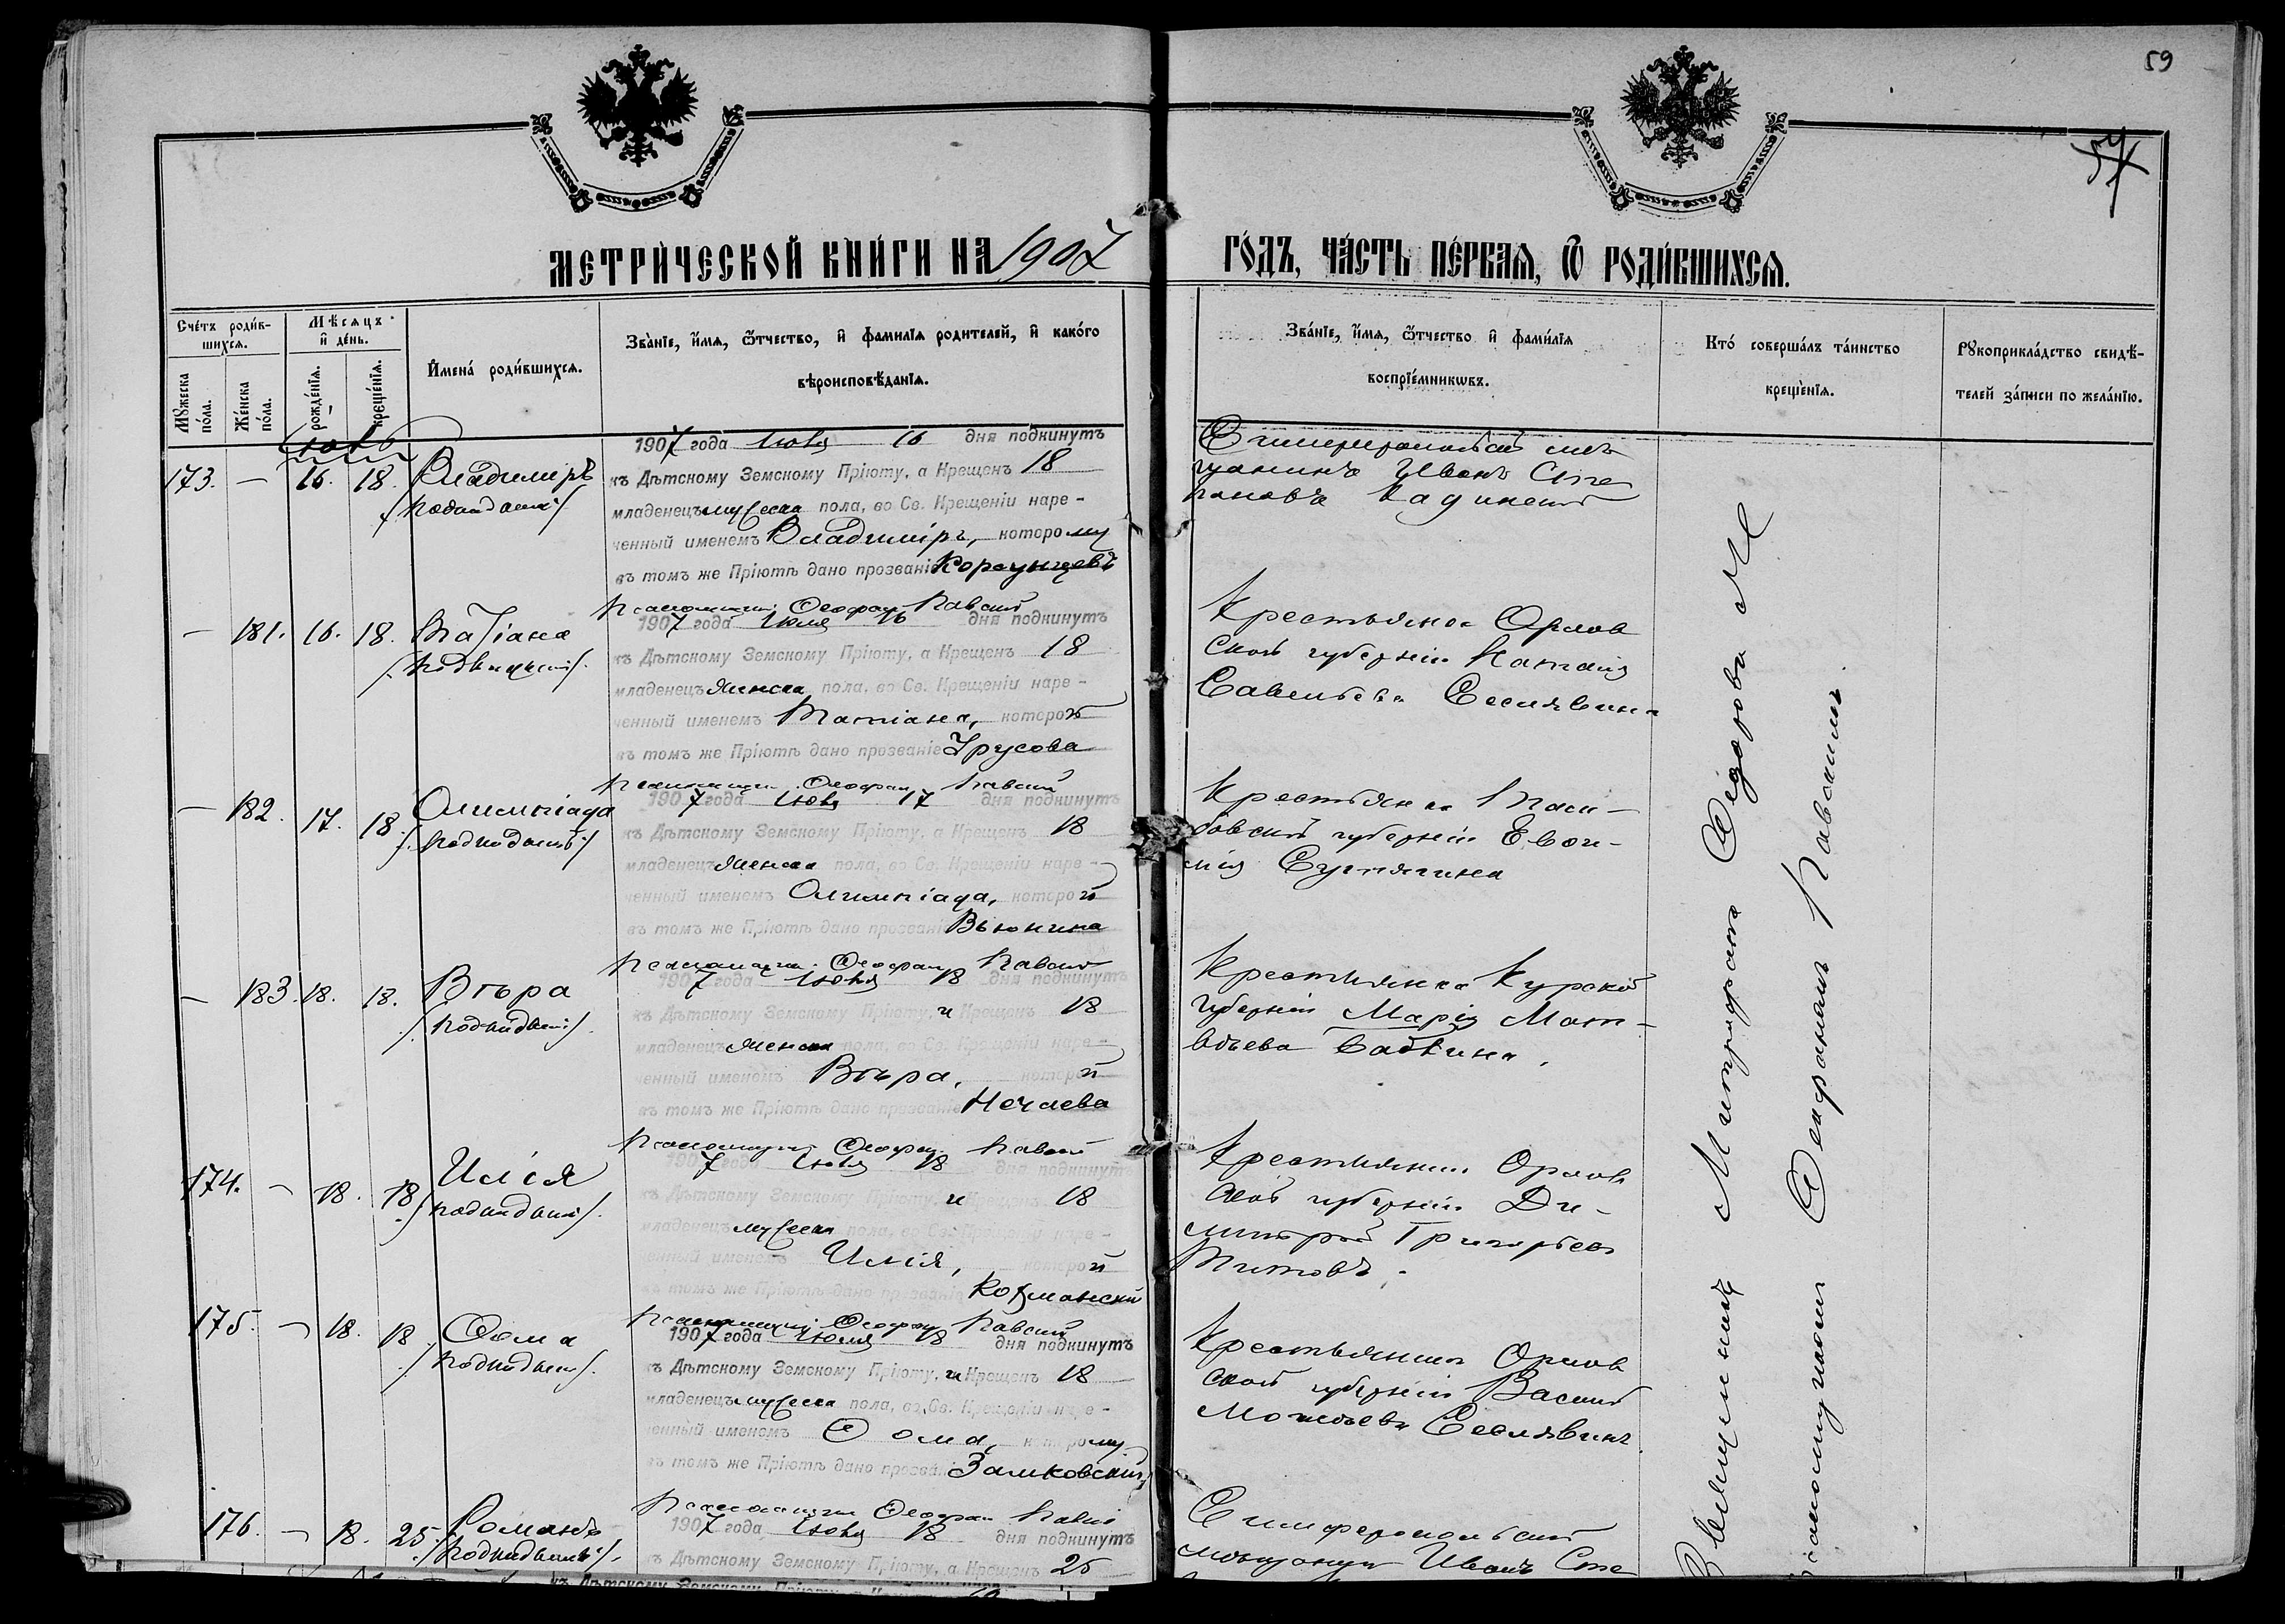 59
57
МЕТРИЧЕСКОЙ КНИГИ НА 1907 ГОДЪ, ЧАСТЬ ПЕРВАЯ, Ѡ РОДИВШИХСЯ.
Счетъ родив-
шихся.
Мужеска
пола.
Женска
пола.
Мѣсяцъ
и день.
рожденія.
крещенія.
Имена родившихся.
Званіе, имя, ѿтчество, и фамилія родителей, и какого
вѣроисповѣданія.
Званіе, имя, ѿтчество и фамилія
воспріемниковъ.
Кто совершалъ таинство
крещенія.
Рукоприкладство свидѣ-
телей записи по желанію.
173. — 16. 18. Владиміръ
1907 года Іюля 16 дня подкинутъ
къ Дѣтскому Земскому Пріюту, а Крещенъ 18
младенецъ мужеска пола, во Св. Крещеніи наре-
ченный именемъ Владиміръ, которому
въ томъ же Пріютѣ дано прозваніе
Иванъ Сте
— 181. 16. 18. Татіана
Псаломщикъ Ѳеофан Павскій
1907 года Іюля 16 дня подкинутъ
къ Дѣтскому Земскому Пріюту, а Крещенъ 18
младенецъ женска пола, во Св. Крещеніи наре-
ченный именемъ Татіана, которой
въ томъ же Пріютѣ дано прозваніе Урусова
Крестьянка Орлов
ской губерніи Наталія
Савельева
— 182. 17. 18. Олимпіада
Псаломщикъ Ѳеофан Павскій
1907 года Іюля 17 дня подкинутъ
къ Дѣтскому Земскому Пріюту, а Крещенъ 18
младенецъ женска пола, во Св. Крещеніи наре-
ченный именемъ Олимпіада, которой
въ томъ же Пріютѣ дано прозваніе Вьюнина
Крестьянка Там-
бовской губерніи Евѳи-
мія
— 183. 18. 18. Вѣра
Псаломщикъ Ѳеофан Павскій
1907 года Іюля 18 дня подкинутъ
къ Дѣтскому Земскому Пріюту, и Крещенъ 18
младенецъ женска пола, во Св. Крещеніи наре-
ченный именемъ Вѣра, которой
въ томъ же Пріютѣ дано прозваніе Нечаева
Крестьянка Курской
губерніи Марія Мат-
вѣева Бабкина.
174. — 18. 18 Илія
Псаломщикъ Ѳеофан Павскій
1907 года Іюля 18 дня подкинутъ
къ Дѣтскому Земскому Пріюту, и Крещенъ 18
младенецъ мужеска пола, во Св. Крещеніи наре-
ченный именемъ Илія, которой
въ томъ же Пріютѣ дано прозваніе
Крестьянинъ Орлов
ской губерніи Ди-
митрій Григорьевъ
Титовъ.
175. — 18. 18. Ѳома
Псаломщикъ Ѳеофан Павскій
1907 года Іюля 18 дня подкинутъ
къ Дѣтскому Земскому Пріюту, и Крещенъ 18
младенецъ мужеска пола, во Св. Крещеніи наре-
ченный именемъ Ѳома, которому
въ томъ же Пріютѣ дано прозваніе Замковскій
Крестьянинъ Орлов
ской губерніи Василій
176. — 18. 25. Романъ
Псаломщикъ Ѳеофан Павскій
1907 года Іюля 18 дня подкинутъ
къ Дѣтскому Земскому Пріюту, а Крещенъ 25
Симферопольскій
мѣщанинъ Иванъ Сте
Священникъ Митрофанъ
Псаломщикомъ Ѳеофаномъ Павскимъ.